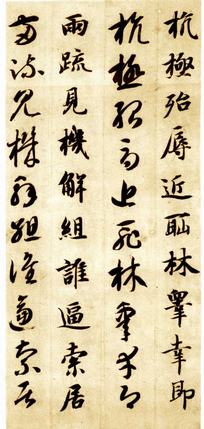 抗極殆辱近恥林皐幸即
抗極殆辱近恥林皐幸即
兩疏見機解組誰逼索居
兩疏見機解組誰逼索居